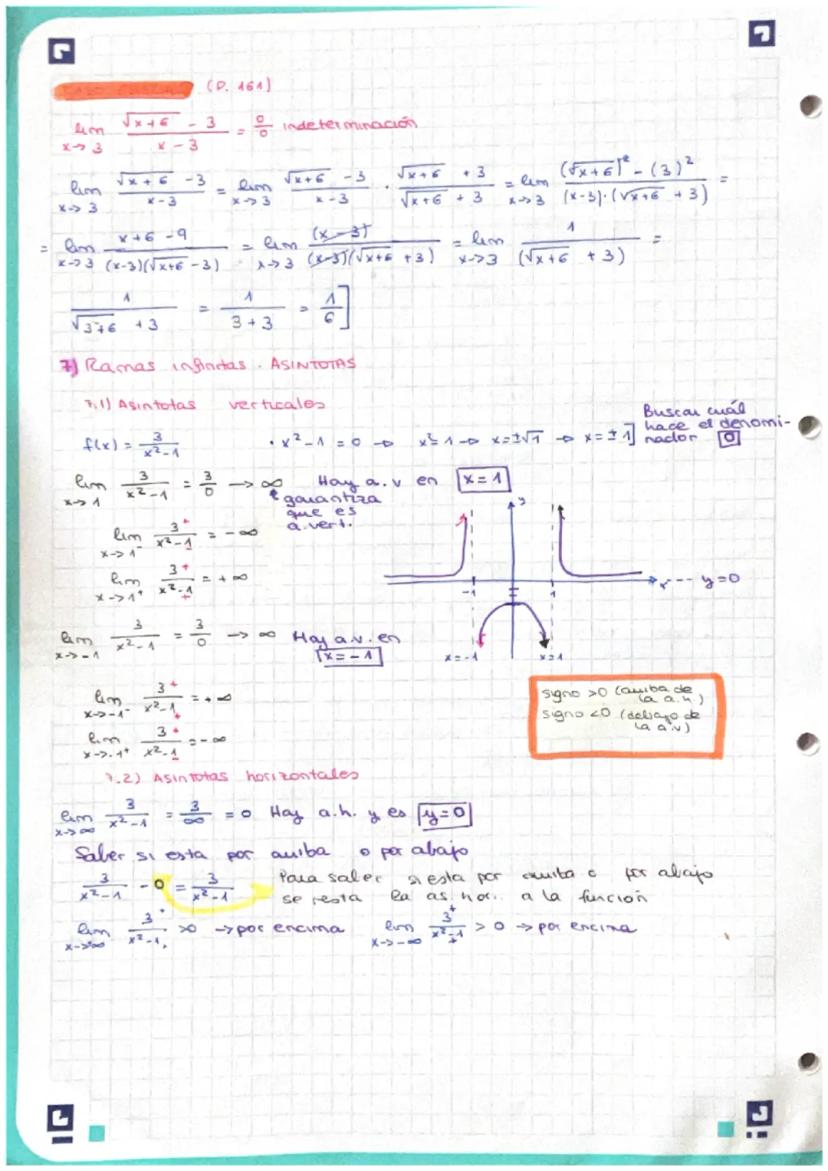 (P. 161)
lim x→3 (√x+6 - 3)/(x-3) = 0/0 indeterminación
lim x→3 (√x+6 - 3)/(x-3) = lim x→3 (√x+6 - 3)/(x-3) · (√x+6 + 3)/(√x+6 + 3) = lim x→3 ((√x+6)² - (3)²)/((x-3)·(√x+6 + 3)) =
= lim x→3 (x+6-9)/((x-3)(√x+6 - 3)) = lim x→3 (x-3)/((x-3)(√x+6 + 3)) = lim x→3 1/(√x+6 + 3) =
1/(√3+6 + 3) = 1/(3+3) = 1/6]
7) Ramas infinitas. ASINTOTAS
7.1) Asintotas verticales
f(x) = 3/(x²-1) · x²-1 = 0 → x²=1 → x=±√1 → x=±1]
Buscar cuál
hace el denomi-
nador 0
lim x→1 3/(x²-1) = 3/0 → ∞ Hay a.v en x=1
garantiza
que es
a.vert.
lim x→1⁻ 3⁺/(x²-1) = -∞
lim x→1⁺ 3⁺/(x²-1) = +∞
y
-1 1 x --- y=0
x=-1 x=1
lim x→-1 3/(x²-1) = 3/0 → ∞ Hay a.v. en
x=-1
lim x→-1⁻ 3⁺/(x²-1) = +∞
lim x→-1⁺ 3⁺/(x²-1) = -∞
signo >0 (arriba de
la a.h)
signo <0 (debajo de
la a.v)
7.2) Asintotas horizontales
lim x→∞ 3/(x²-1) = 3/∞ = 0 Hay a.h. y es y=0
Saber si esta por arriba o por abajo
3/(x²-1) - 0 = 3/(x²-1) Para saber si esta por arriba o por abajo
se resta la as. hori. a la función
lim x→+∞ 3⁺/(x²-1) >0 → por encima lim x→-∞ 3⁺/(x²-1) > 0 → por encima